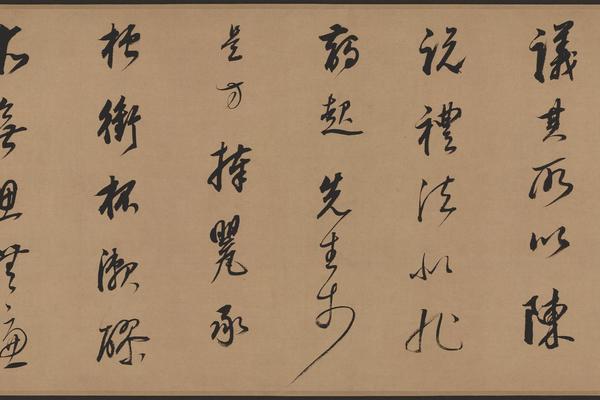 議其所以陳
說禮法是非
起先生於
是方捧甖承
槽銜杯漱醪
無思無慮